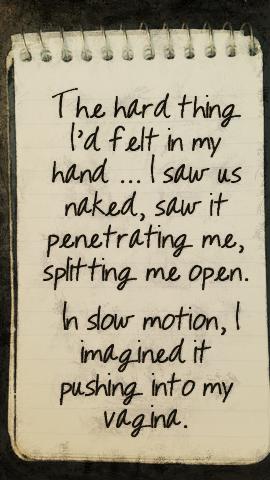 The hard thing
I'd felt in my
hand ... I saw us
naked, saw it
penetrating me,
splitting me open.
In slow motion, I
imagined it
pushing into my
vagina.